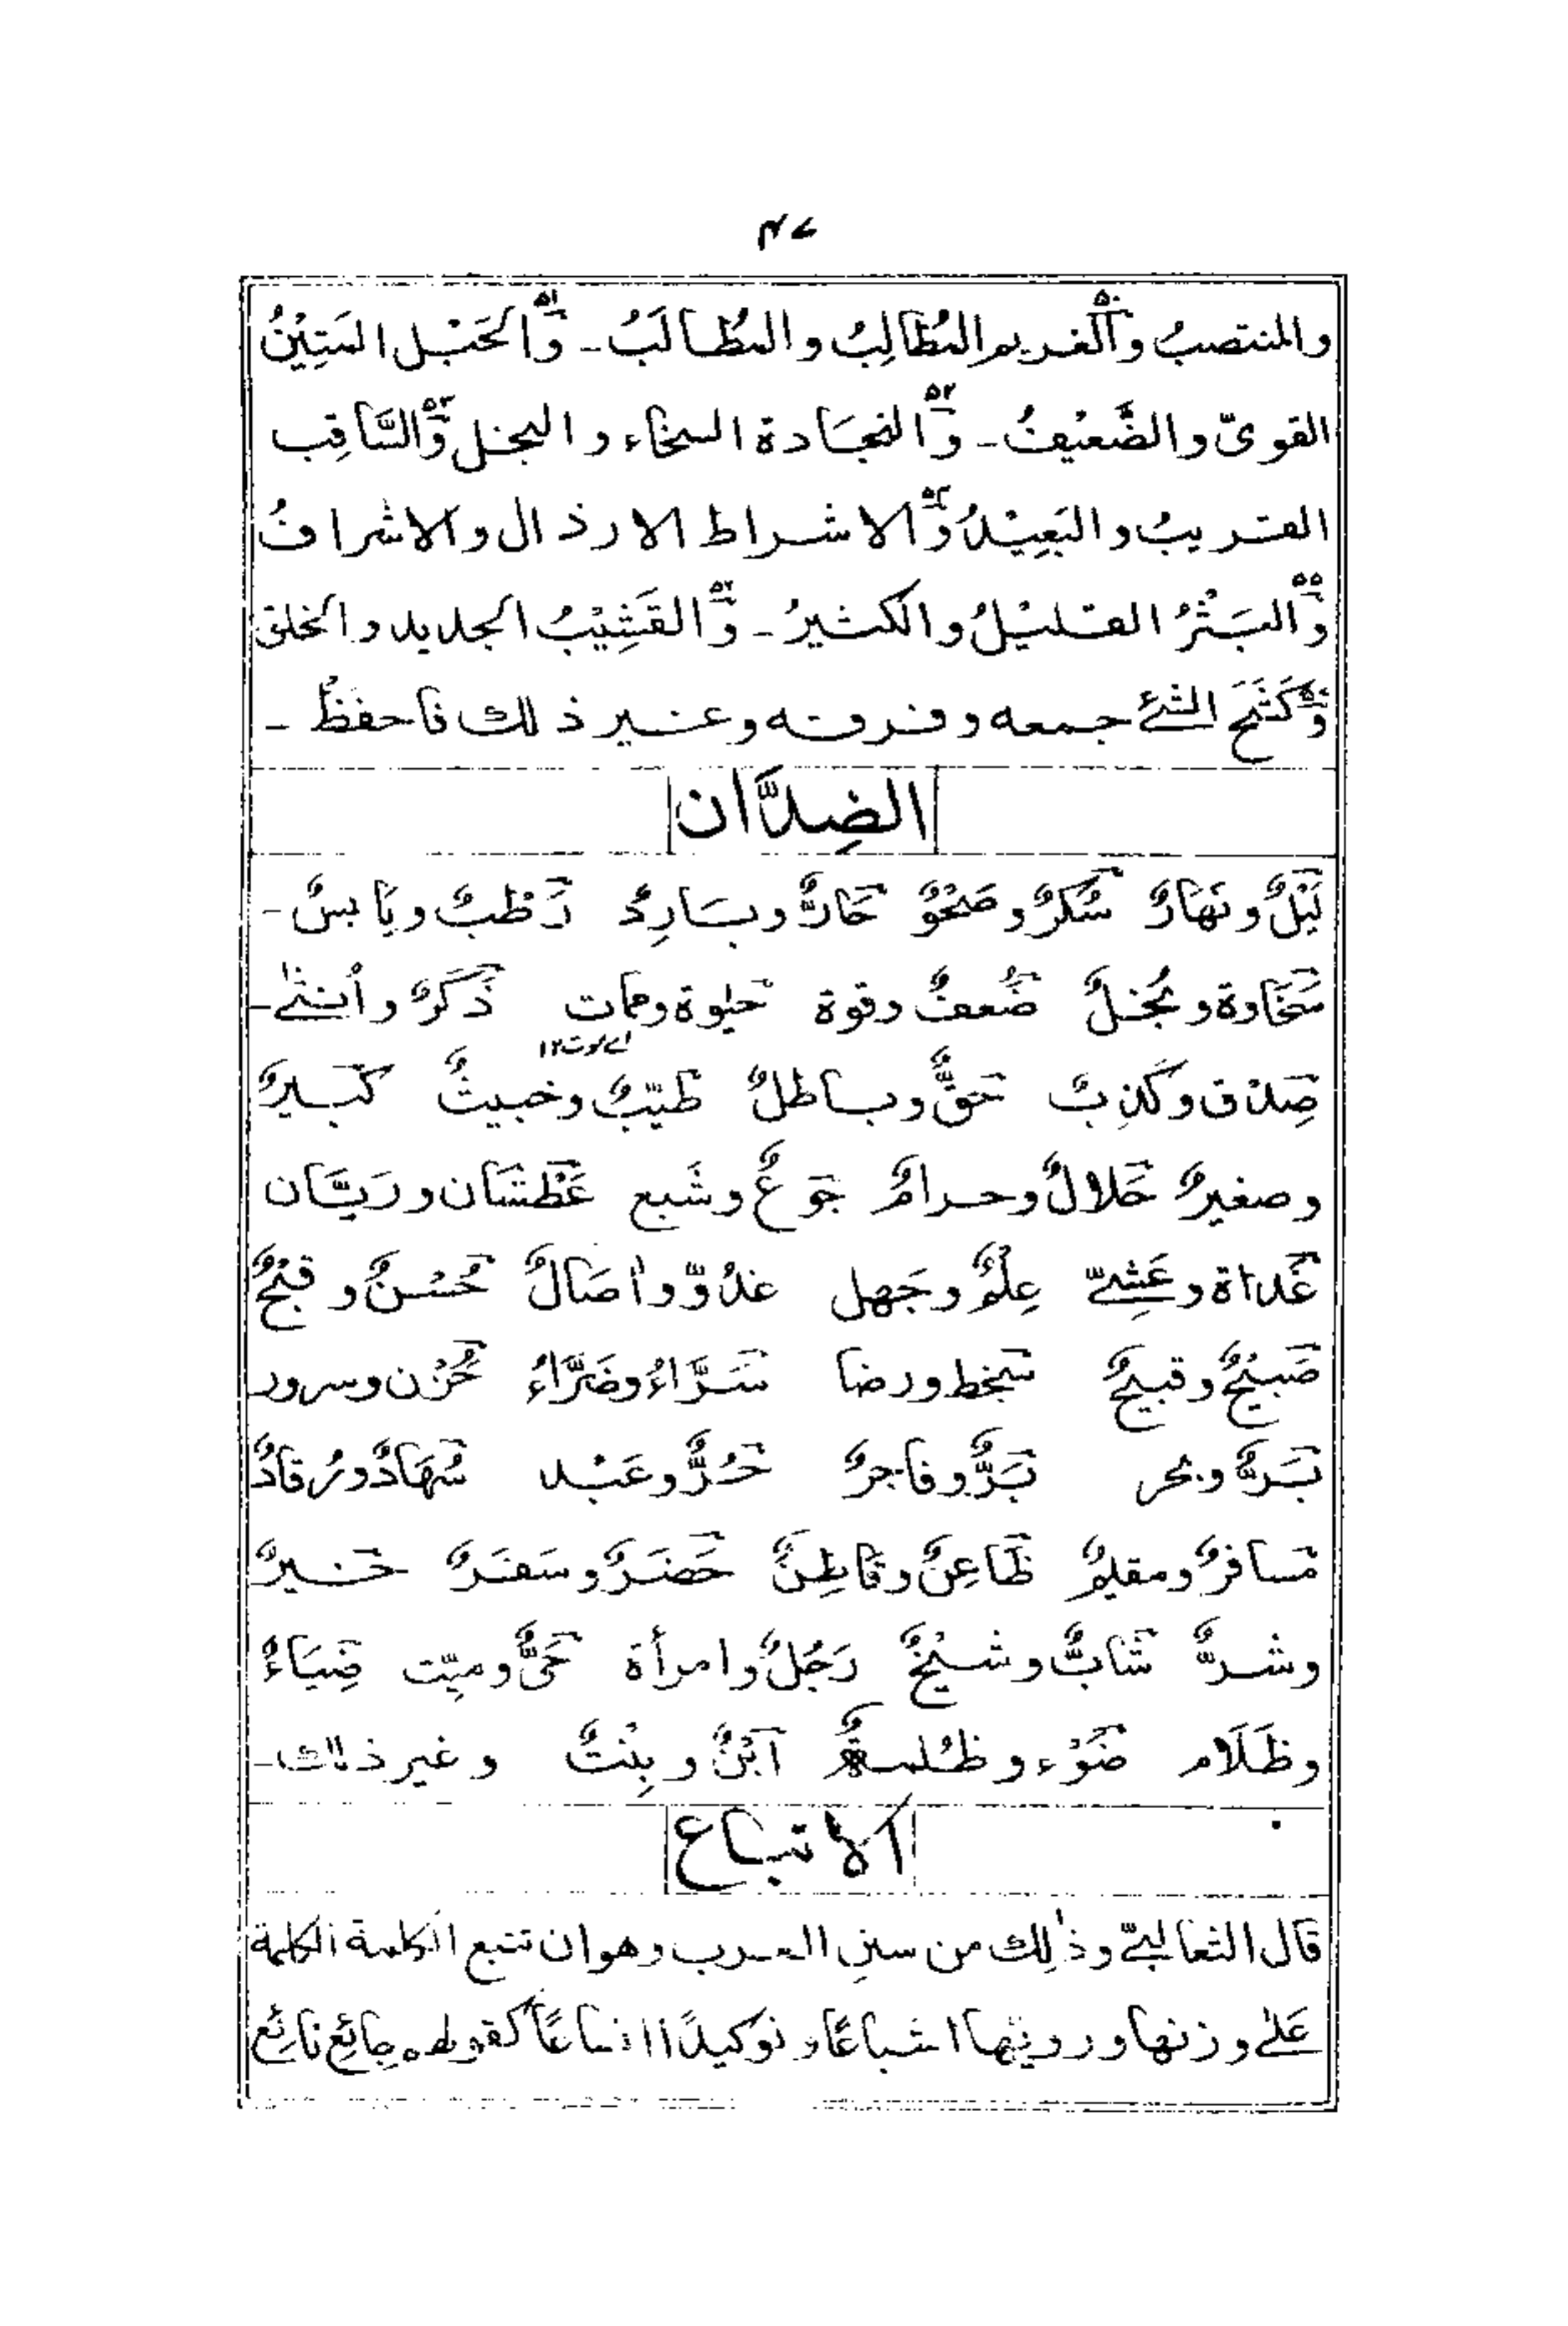 ۴۷
والمنتصبُ والغريم المُطَالِبُ والمُطَالَبُ۔ والحَبْل المَتِيْنُ
القوىّ والضَّعِيْفُ۔ والفجَادة السخاء والبخل والسَّاقِب
القريبُ والبَعِيْدُ والاشراط الارذال والاشرافُ
والبَثْرُ القليْلُ والكثيرُ۔ والقَشِيْبُ الجديد والخلق
وكَشَحَ الشئ جمعه وفرقه وغير ذلك فاحفظُ ۔
الضِدَّان
لَيْلٌ ونَهَارٌ سُكرٌ وصَحْوٌ حَارٌّ وبَارِدٌ رَطْبٌ ويَابسٌ۔
سَخَاوة وبُخلٌ ضُعفٌ وقوة حَيٰوة وممات ذَكَرٌ وأُنثٰى۔
اے موت ۱۲
صِدْق وكَذِبٌ حَقٌّ وباطلٌ طَيّبٌ وخبيثٌ كَبيرٌ
وصغيرٌ حَلالٌ وحرامٌ جَوعٌ وشَبع عَطْشَان ورَيَّان
غَداة وعَشِىّ عِلْمٌ وجَهل غدُوّ واٰصَالٌ حُسْنٌ وقبْحٌ
صَبِيْحٌ وقبيحٌ سَخط ورضا سَرَّاءُ وضَرَّاءُ حُزْن وسرور
بَرٌّ وبحر بَرٌّ وفاجرٌ حُرٌّ وعَبْد سُهَادٌ ورُقادٌ
مُسافرٌ ومقيمٌ ظَاعِنٌ وقَاطِنٌ حَضَرٌ وسَفَرٌ خَيرٌ
وشرٌّ شَابٌّ وشيْخٌ رَجُلٌ وامرأة حَىٌّ وميّت ضِيَاءٌ
وظَلَام ضَوْء وظُلمةٌ اَبْنٌ وبِنْتٌ وغير ذلك۔
الاتباع
قال الثعالبىّ وذٰلِك من سننِ العرب وهو ان تتبع الكلمة الكلمة
عَلٰى وزنها ورويّها اشباعًا وتوكيدًا اتساعًا كقولهم جائِع نائِع